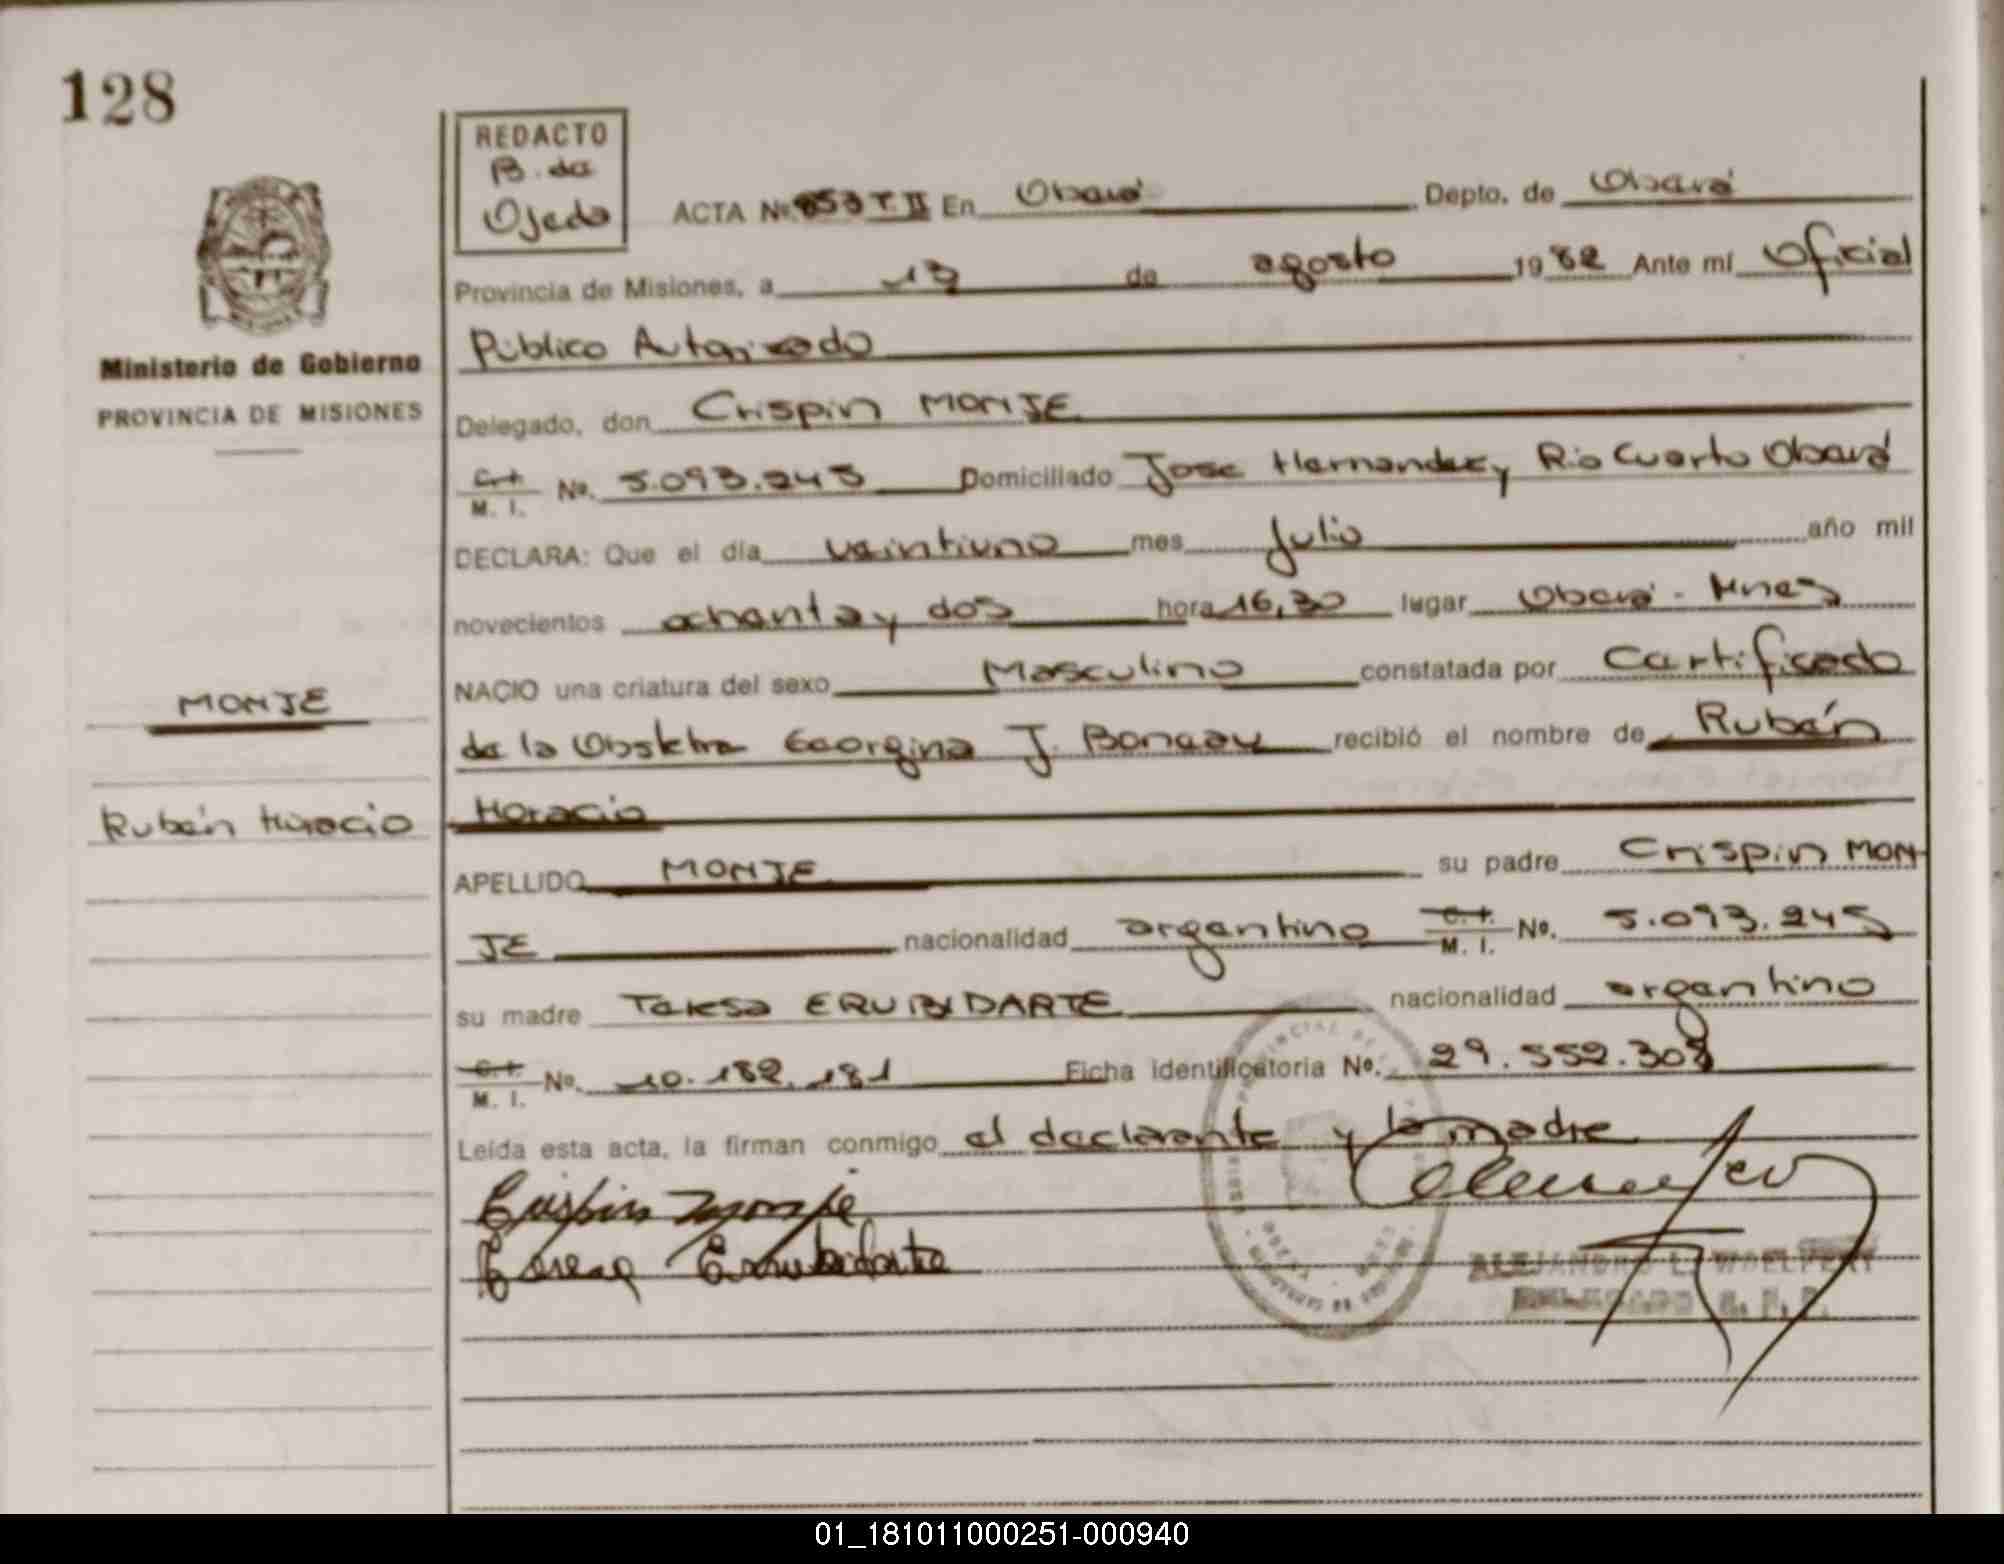 128
REDACTO
B. de
Ojeda
ACTA Nº 853 T. II En Oberá Depto. de Oberá
Provincia de Misiones, a 13 de agosto 1982 Ante mí Oficial
Ministerio de Gobierno
PROVINCIA DE MISIONES
Público Autorizado
Delegado, don Crispin MONJE
C. I.
M. I. No. 5.093.245 Domiciliado Jose Hernandez y Rio Cuarto Oberá
DECLARA: Que el día veintiuno mes Julio año mil
novecientos ochenta y dos hora 16,30 lugar Oberá - Mnes
NACIO una criatura del sexo Masculino constatada por Certificado
MONJE
de la Obstetra Georgina J. recibió el nombre de Rubén
Rubén Horacio
Horacio
APELLIDO MONJE su padre Crispin MON-
JE nacionalidad argentino C. I. M. I. Nº. 5.093.245
su madre Teresa ERUBIDARTE nacionalidad argentino
C. I. M. I. No. 10.182.181 Ficha identificatoria Nº. 29.552.308
Leída esta acta, la firman conmigo el declarante y la madre
Crispin Monje
Teresa Erubidarte
ALEJANDRO L. WOELFERT
DELEGADO R. P. P.
01_181011000251-000940